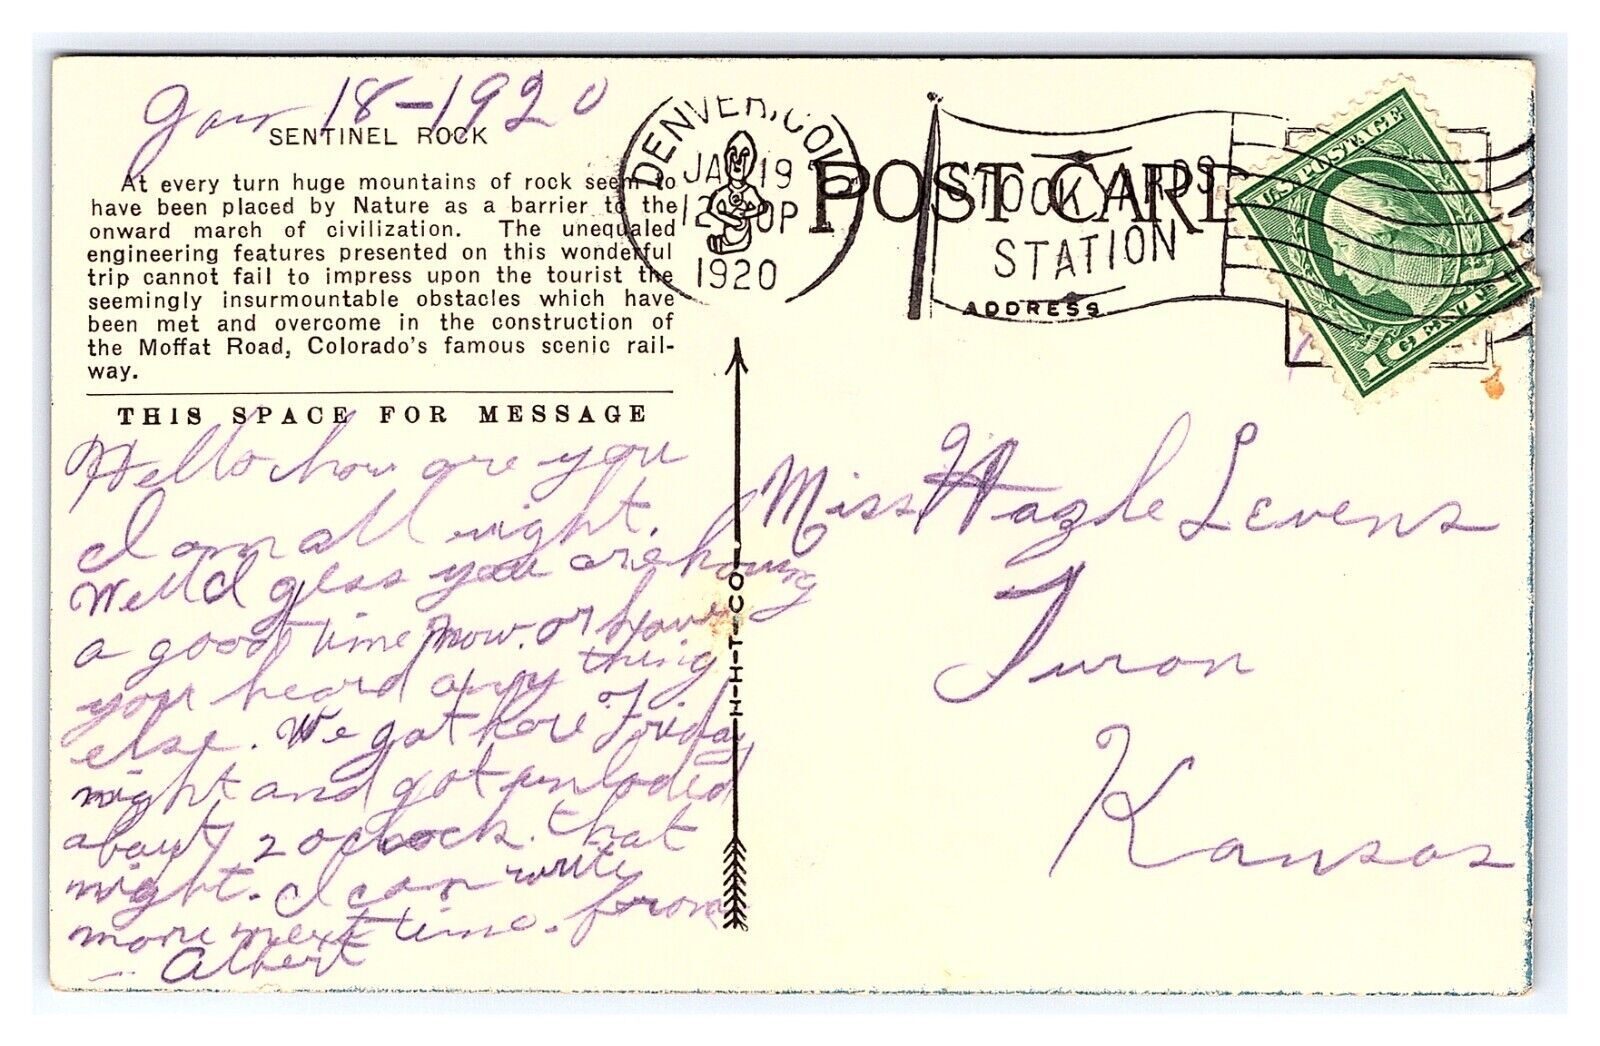 Jan 18-1920
SENTINEL ROCK
At every turn huge mountains of rock seem to
have been placed by Nature as a barrier to the
onward march of civilization. The unequaled
engineering features presented on this wonderful
trip cannot fail to impress upon the tourist the
seemingly insurmountable obstacles which have
been met and overcome in the construction of
the Moffat Road, Colorado's famous scenic rail-
way.
THIS SPACE FOR MESSAGE
Hello how are you
I am all right.
Well I gess you are having
a good time now. or have
you heard any thing
else. We got here Friday
night and got unloded
about 2 oclock that
night. I can write
more next time. from
Albert
H-H-T-CO.
DENVER, COLO.
JAN 19
1920
STOCK YARDS
STATION
POST CARD
ADDRESS
U.S. POSTAGE
1 CENT 1
Miss Hazle Levens
Turon
Kansas